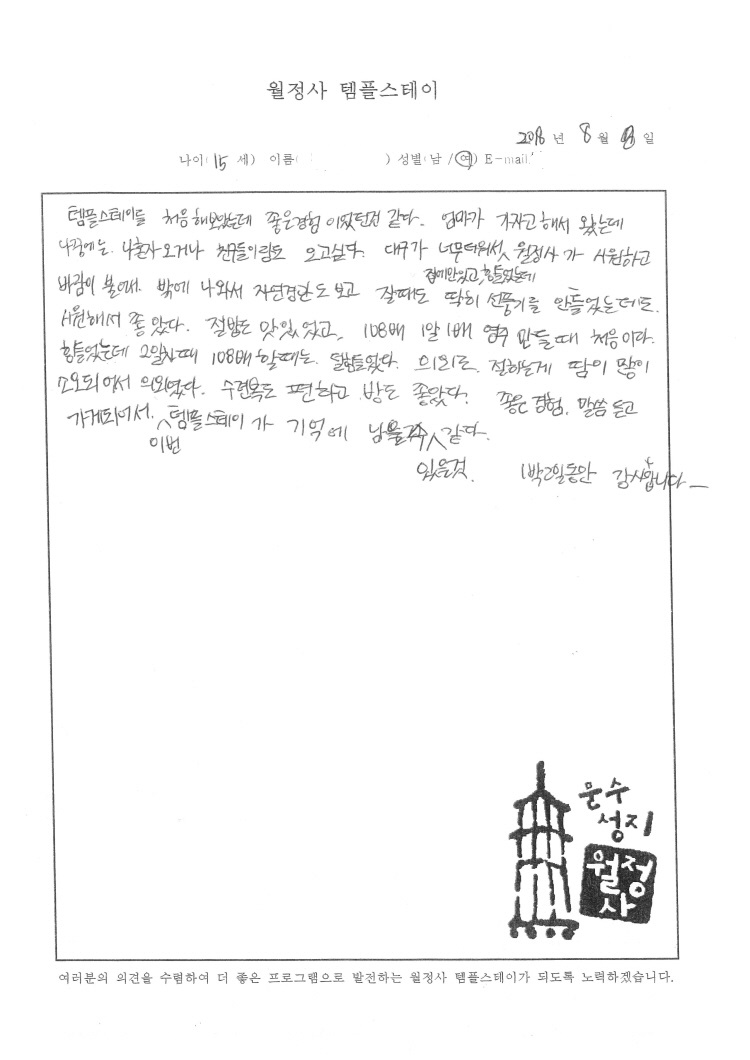 월정사 템플스테이
2018 년 8 월 일
나이( 15 세) 이름( ) 성별(남 / 여) E-mail:
템플스테이를 처음해보았는데 좋은경험이었던것 같다. 엄마가 가자고해서 왔는데
나중에는 나혼자오거나 친구들이랑도 오고싶다. 대구가 너무더워서, 월정사가 시원하고
집에만있고, 힘들었는데
바람이 불어서 밖에 나와서 자연경관도보고 잘때도 딱히 선풍기를 안틀었는데도
시원해서 좋았다. 절밥도 맛있었고, 108배 1알 1배 염주 만들때 처음이라
힘들었는데 2일차때 108배할때는 덜힘들었다. 의외로 절하는게 땀이 많이
소요되어서 의외였다. 수련복도 편하고 방도 좋았다. 좋은 경험, 말씀 듣고
가게되어서 템플스테이가 기억에 남 같다.
이번
있을것
1박2일동안 감사합니다
문수
성지
월정
사
여러분의 의견을 수렴하여 더 좋은 프로그램으로 발전하는 월정사 템플스테이가 되도록 노력하겠습니다.